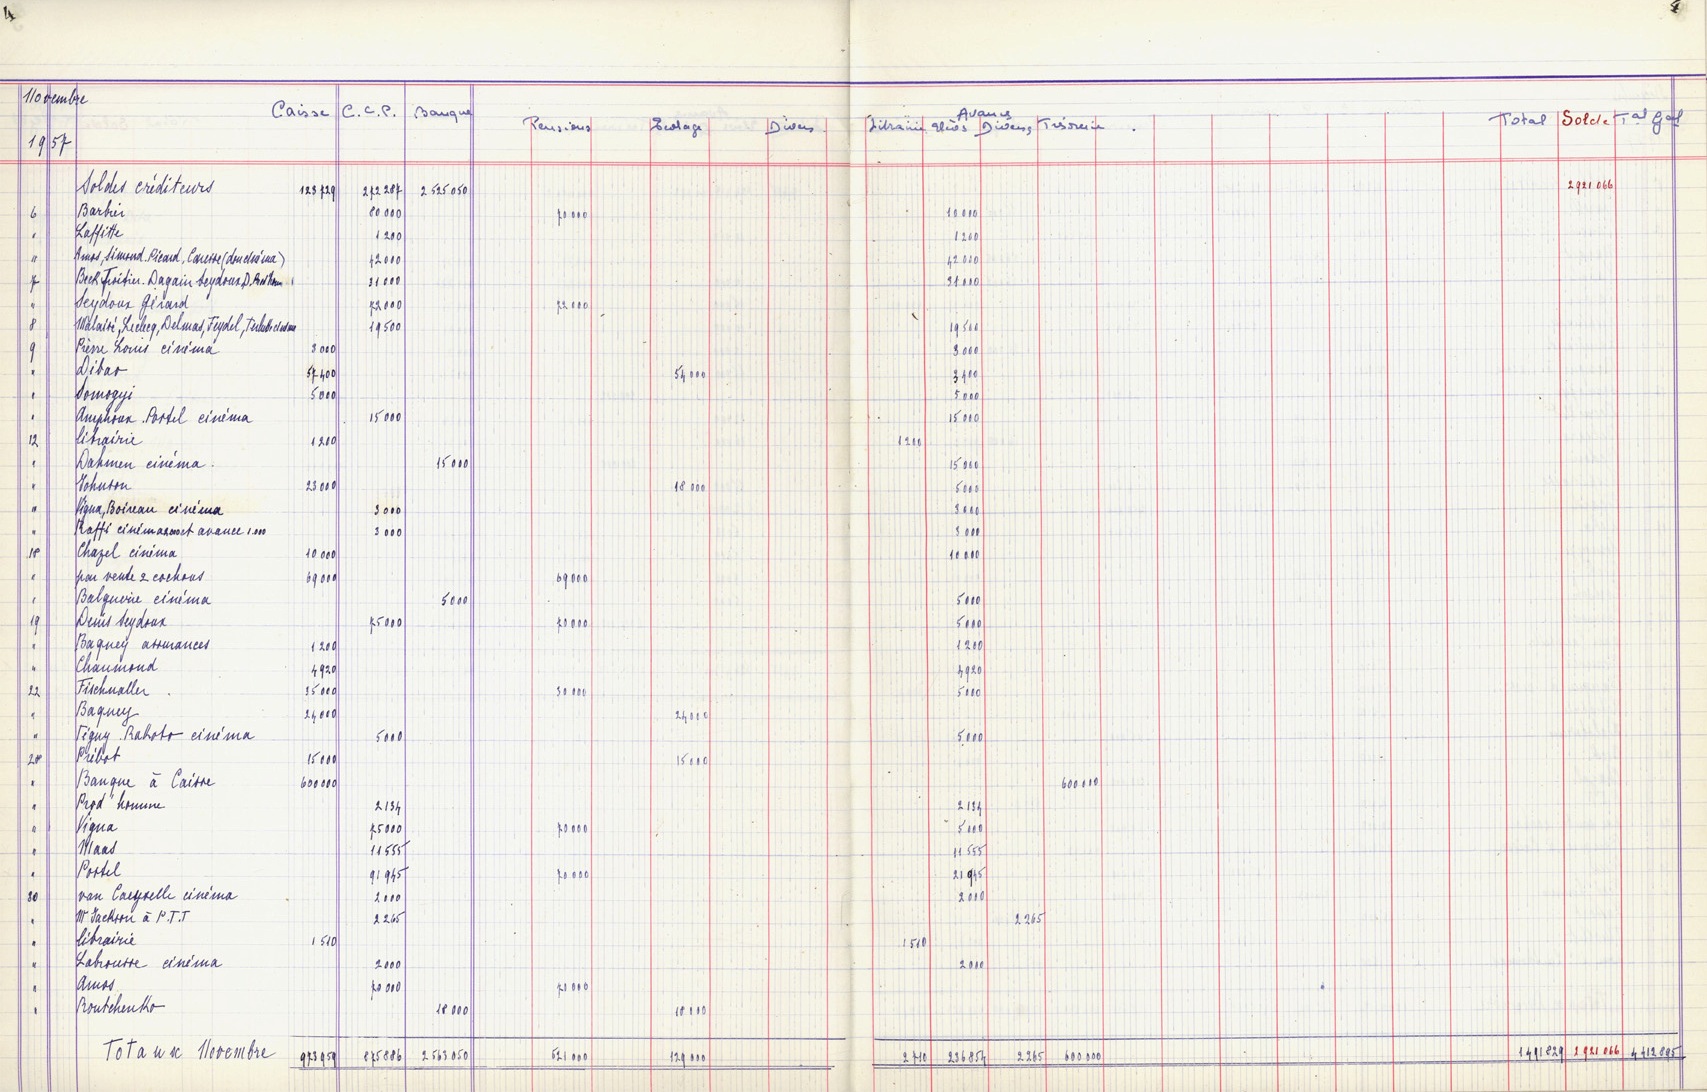 4 5
Novembre Caisse C.C.P. Banque Avances
Pensions Ecolage Divers Librairie Elèves Divers Trésorerie Total Solde Tal Gal
1957
Soldes créditeurs 123 729 272 287 2 525 050 2 921 066
6 Barbier 80 000 70 000 10 000
" Laffitte 1 200 1 200
" Amos, Simond. Picard, (dou cinéma) 42 000 42 000
7 Beck. Dagain Seydoux 31 000 31 000
" Seydoux Gérard 72 000 72 000
8 Malaisé, Leclecq, Delmas, Feydel, 19 500 19 500
9 Pierre Louis cinéma 3 000 3 000
" Dibao 57 400 54 000 3 400
" Somogyi 5 000 5 000
" Amphoux. Portel cinéma 15 000 15 000
12 librairie 1 200 1 200
" Dahmen cinéma 15 000 15 000
" Johnson 23 000 18 000 5 000
" Vigna, Boireau cinéma 3 000 3 000
" Raffi cinéma 2000 et avance 1.000 3 000 3 000
18 Chazel cinéma 10 000 10 000
" par vente 2 cochons 69 000 69 000
" Balguerie cinéma 5 000 5 000
19 Denis Seydoux 75 000 70 000 5 000
" Baguey assurances 1 200 1 200
" Chaumond 4 920 4 920
22 Fischnaller 35 000 30 000 5 000
" Baguey 24 000 24 000
" Tigny. Rakoto cinéma 5 000 5 000
28 Prébot 15 000 15 000
" Banque à Caisse 600 000 600 000
" Prod'homme 2 134 2 134
" Vigna 75 000 70 000 5 000
" Maas 11 555 11 555
" Portel 91 945 70 000 21 945
30 van cinéma 2 000 2 000
" Mr Jackson à P.T.T 2 265 2 265
" librairie 1 510 1 510
" Labrousse cinéma 2 000 2 000
" Amos 70 000 70 000
" Routchenko 18 000 18 000
Totaux Novembre 973 959 875 886 2 563 050 521 000 129 000 2 710 236 854 2 265 600 000 1 491 829 2 921 066 4 412 895